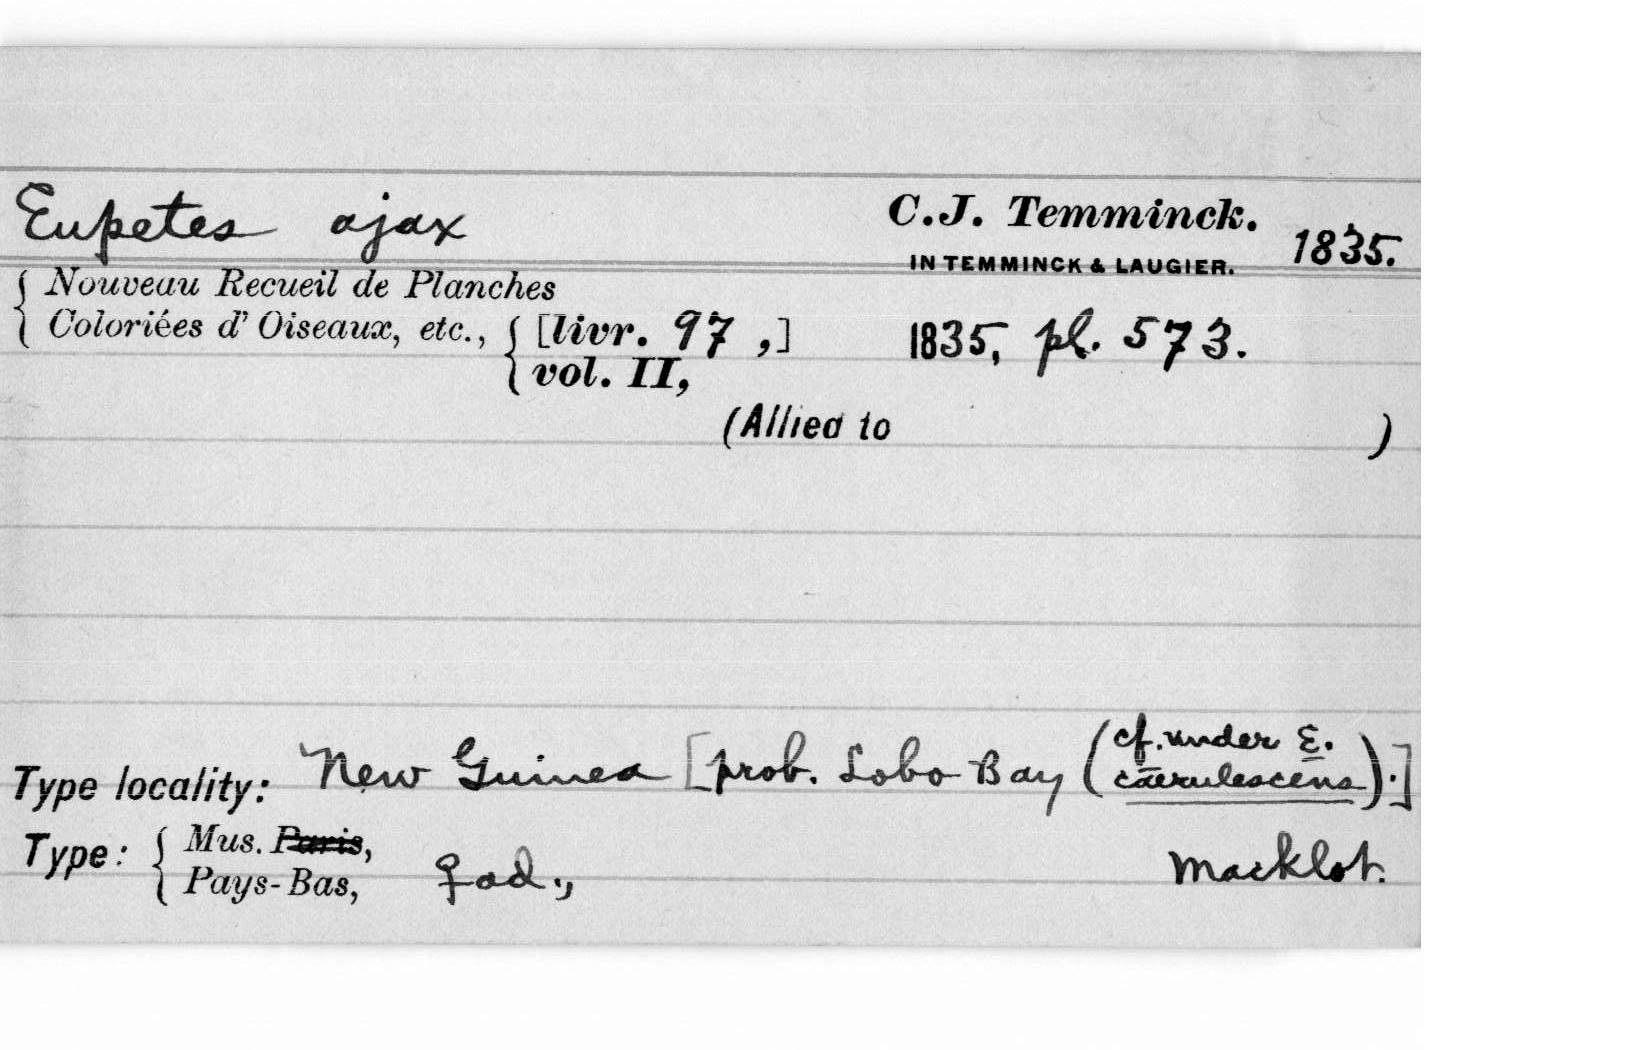 Eupetes ajax C.J. Temminck. 1835.
IN TEMMINCK & LAUGIER.
Nouveau Recueil de Planches
Coloriées d' Oiseaux, etc., [livr. 97 ,] 1835, pl. 573.
vol. II,
(Allied to )
Type locality: New Guinea [prob. Lobo Bay (cf. under E. caerulescens).]
Type: Mus. Paris,
Pays-Bas, ♀ ad., Macklot.